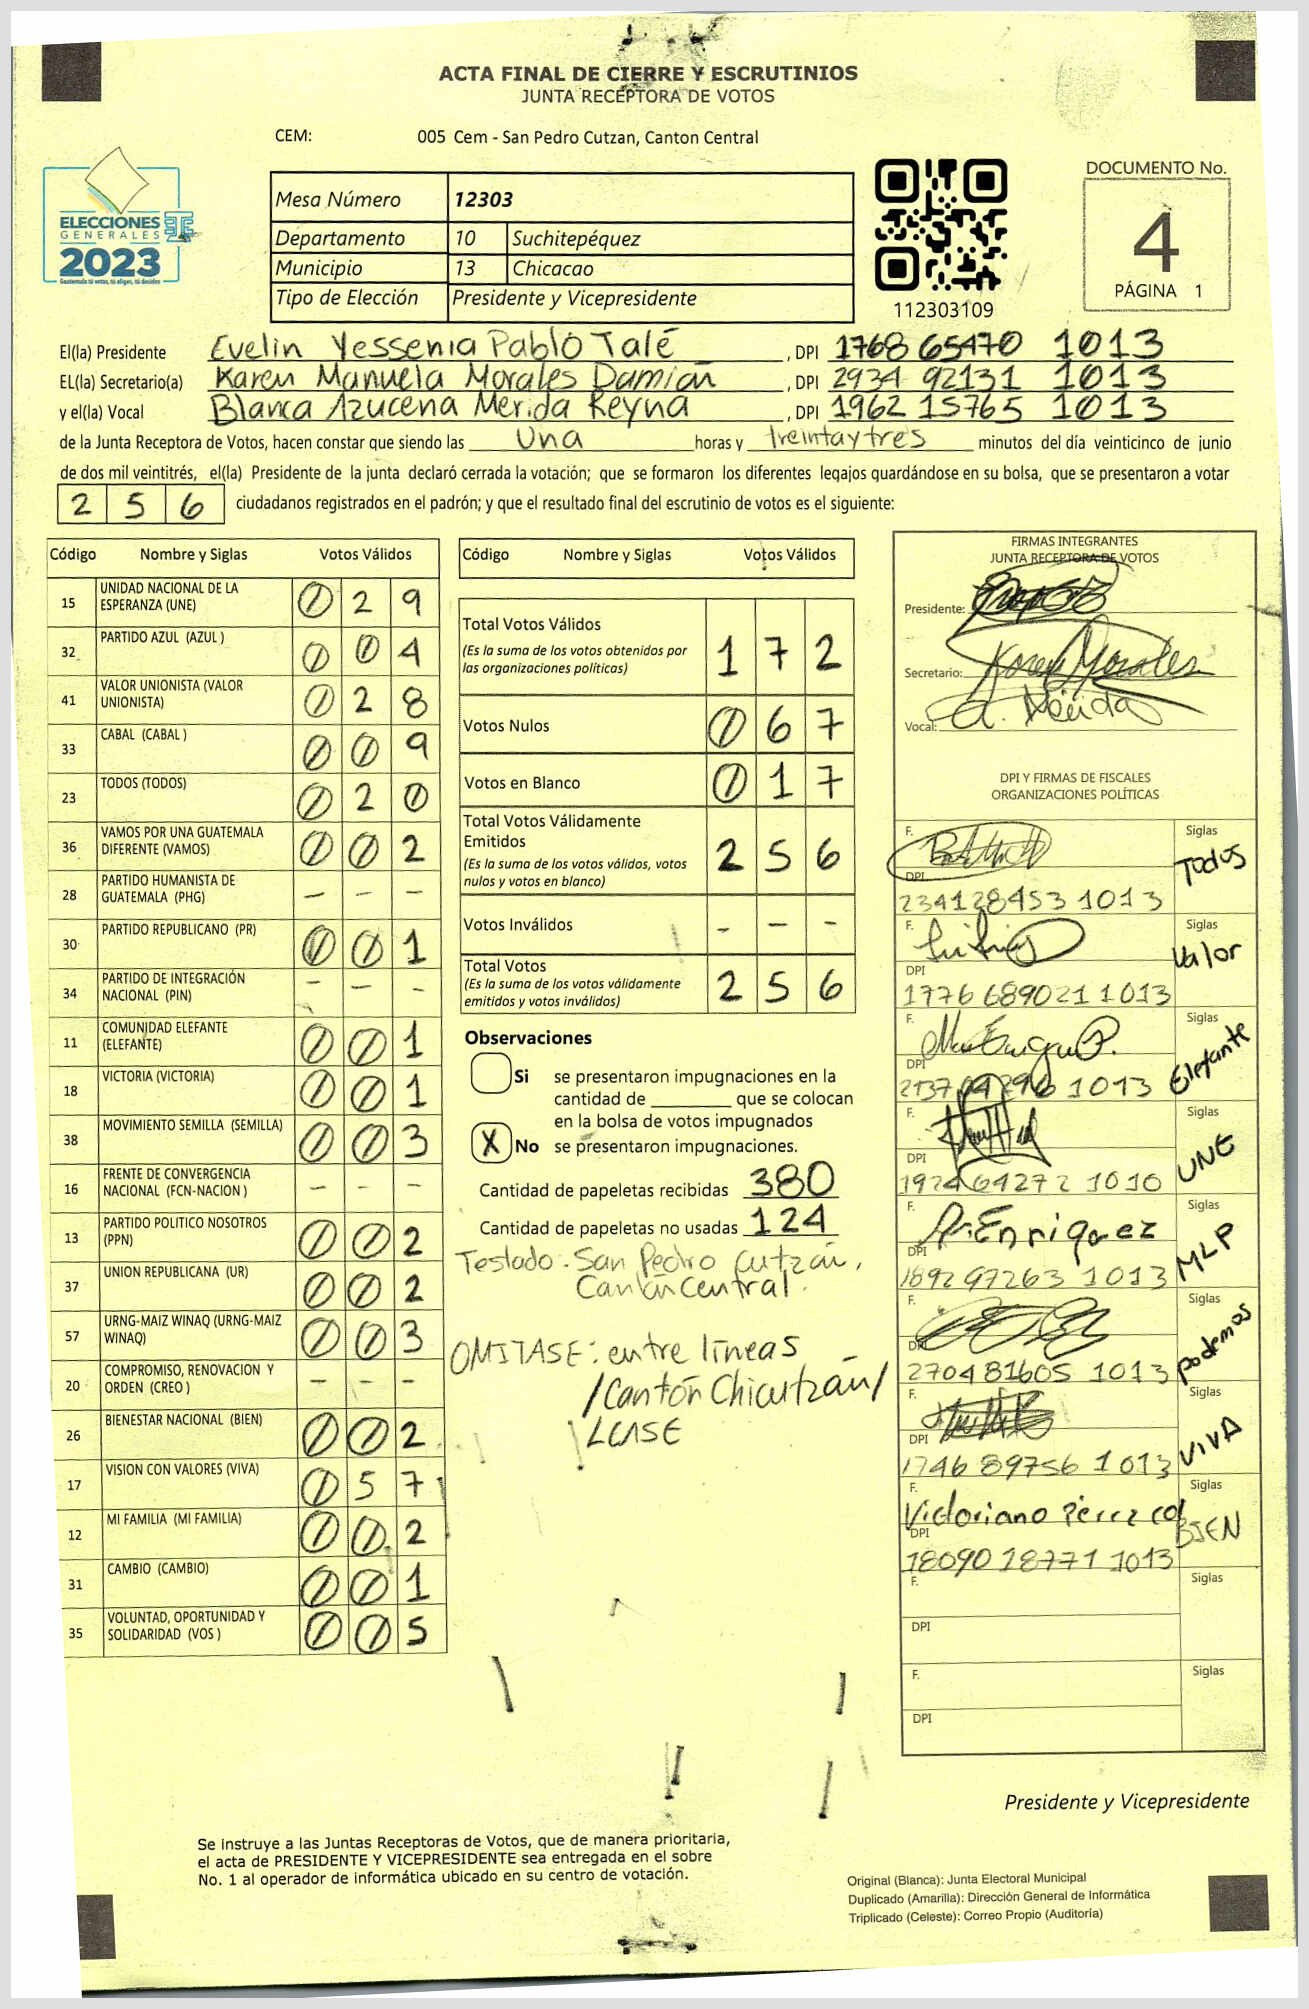 ACTA FINAL DE CIERRE Y ESCRUTINIOS
JUNTA RECEPTORA DE VOTOS
CEM: 005 Cem - San Pedro Cutzan, Canton Central
ELECCIONES
GENERALES
2023
Guatemala tú votas, tú eliges, tú decides
TSE
Mesa Número 12303
Departamento 10 Suchitepéquez
Municipio 13 Chicacao
Tipo de Elección Presidente y Vicepresidente
112303109
DOCUMENTO No.
4
PÁGINA 1
El(la) Presidente Evelin Yessenia Pablo Talé , DPI 1768 65470 1013
EL(la) Secretario(a) Karen Manuela Morales Damián , DPI 2934 92131 1013
y el(la) Vocal Blanca Azucena Merida Reyna , DPI 1962 15765 1013
de la Junta Receptora de Votos, hacen constar que siendo las Una horas y treintaytres minutos del día veinticinco de junio
de dos mil veintitrés, el(la) Presidente de la junta declaró cerrada la votación; que se formaron los diferentes legajos guardándose en su bolsa, que se presentaron a votar
256 ciudadanos registrados en el padrón; y que el resultado final del escrutinio de votos es el siguiente:
Código Nombre y Siglas Votos Válidos
15 UNIDAD NACIONAL DE LA ESPERANZA (UNE) 0 2 9
32 PARTIDO AZUL (AZUL ) 0 0 4
41 VALOR UNIONISTA (VALOR UNIONISTA) 0 2 8
33 CABAL (CABAL ) 0 0 9
23 TODOS (TODOS) 0 2 0
36 VAMOS POR UNA GUATEMALA DIFERENTE (VAMOS) 0 0 2
28 PARTIDO HUMANISTA DE GUATEMALA (PHG) - - -
30 PARTIDO REPUBLICANO (PR) 0 0 1
34 PARTIDO DE INTEGRACIÓN NACIONAL (PIN) - - -
11 COMUNIDAD ELEFANTE (ELEFANTE) 0 0 1
18 VICTORIA (VICTORIA) 0 0 1
38 MOVIMIENTO SEMILLA (SEMILLA) 0 0 3
16 FRENTE DE CONVERGENCIA NACIONAL (FCN-NACION ) - - -
13 PARTIDO POLITICO NOSOTROS (PPN) 0 0 2
37 UNION REPUBLICANA (UR) 0 0 2
57 URNG-MAIZ WINAQ (URNG-MAIZ WINAQ) 0 0 3
20 COMPROMISO, RENOVACION Y ORDEN (CREO ) - - -
26 BIENESTAR NACIONAL (BIEN) 0 0 2
17 VISION CON VALORES (VIVA) 0 5 7
12 MI FAMILIA (MI FAMILIA) 0 0 2
31 CAMBIO (CAMBIO) 0 0 1
35 VOLUNTAD, OPORTUNIDAD Y SOLIDARIDAD (VOS ) 0 0 5
Código Nombre y Siglas Votos Válidos
Total Votos Válidos 1 7 2
(Es la suma de los votos obtenidos por
las organizaciones políticas)
Votos Nulos 0 6 7
Votos en Blanco 0 1 7
Total Votos Válidamente
Emitidos 2 5 6
(Es la suma de los votos válidos, votos
nulos y votos en blanco)
Votos Inválidos - - -
Total Votos 2 5 6
(Es la suma de los votos válidamente
emitidos y votos inválidos)
Observaciones
Si se presentaron impugnaciones en la
cantidad de ________ que se colocan
en la bolsa de votos impugnados
X No se presentaron impugnaciones.
Cantidad de papeletas recibidas 380
Cantidad de papeletas no usadas 124
Testado: San Pedro Cutzán,
Cantón Central.
OMITASE: entre líneas
/Cantón Chicutzán/
LEASE
FIRMAS INTEGRANTES
JUNTA RECEPTORA DE VOTOS
Presidente:
Secretario: Karen Morales
Vocal: a. Mérida
DPI Y FIRMAS DE FISCALES
ORGANIZACIONES POLÍTICAS
F. Siglas Todos
DPI 234128453 1013
F. Siglas Valor
DPI 1776 689021 1013
F. Siglas Elefante
DPI 1013
F. Siglas UNE
DPI 1924 64272 1010
F. Enriquez Siglas MLP
DPI 1892 97263 1013
F. Siglas podemos
DPI 270481605 1013
F. Siglas VIVA
DPI 1746 89756 1013
F. Victoriano Pérez col Siglas BIEN
DPI 18090 18771 1013
F. Siglas
DPI
F. Siglas
DPI
Presidente y Vicepresidente
Se instruye a las Juntas Receptoras de Votos, que de manera prioritaria,
el acta de PRESIDENTE Y VICEPRESIDENTE sea entregada en el sobre
No. 1 al operador de informática ubicado en su centro de votación.
Original (Blanca): Junta Electoral Municipal
Duplicado (Amarilla): Dirección General de Informática
Triplicado (Celeste): Correo Propio (Auditoría)